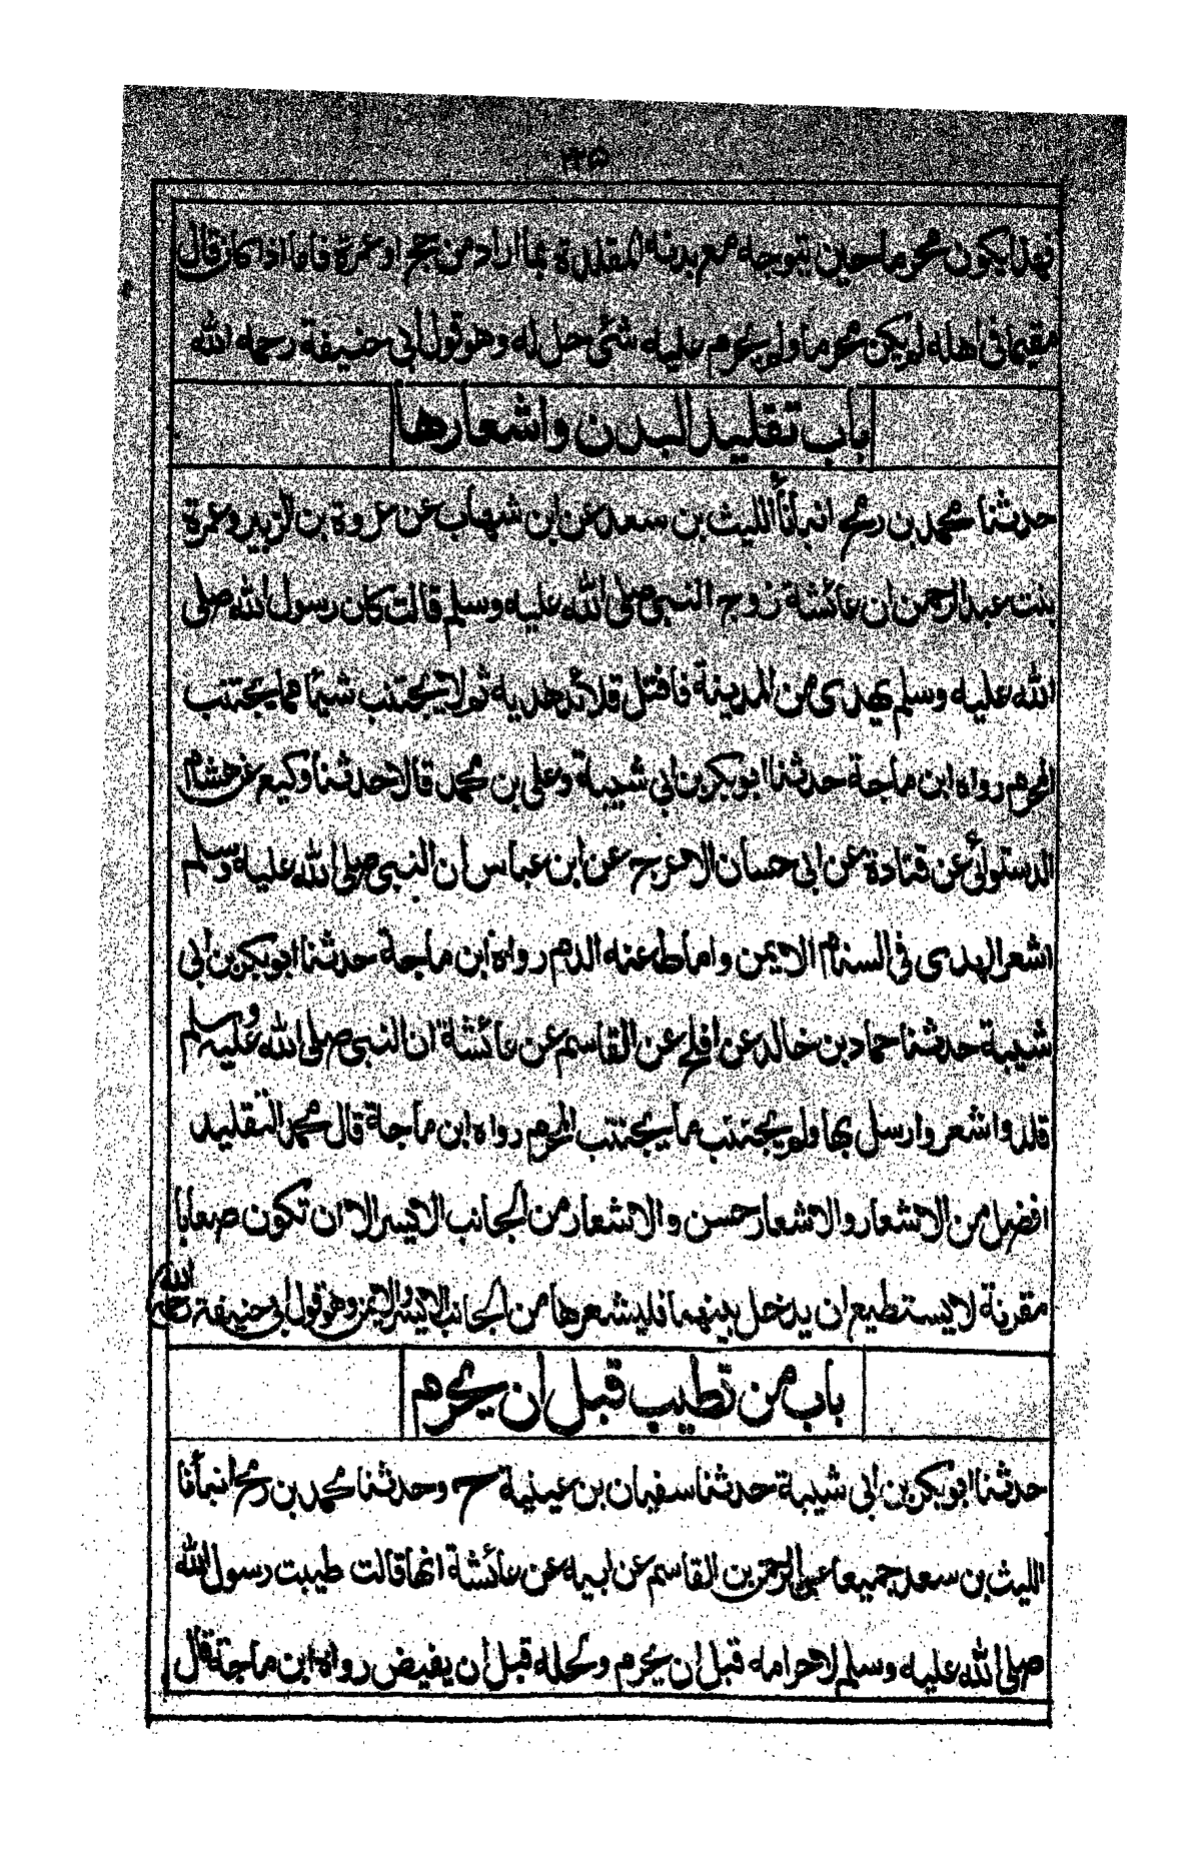 ۲۳۵
فهذا يكون محرما حين يتوجه مع بدنه المقلدة بما اراد من حج او عمرة فاما اذا كان قال
مقيما فى اهله لم يكن محرما ولم يحرم عليه شئى حل له وهو قول ابى حنيفة رحمه الله
باب تقليد البدن واشعارها
حدثنا محمد بن رمح انبأنا الليث بن سعد عن ابن شهاب عن عروة بن الزبير وعمرة
بنت عبد الرحمن ان عائشة زوج النبى صلى الله عليه وسلم قالت كان رسول الله صلى
الله عليه وسلم يهدى من المدينة فافتل قلائد هديه ثم لا يجتنب شيئا مما يجتنب
المحرم رواه ابن ماجة حدثنا ابو بكر بن ابى شيبة وعلى بن محمد قالا حدثنا وكيع عن هشام
الدستوائى عن قتادة عن ابى حسان الاعرج عن ابن عباس ان النبى صلى الله عليه وسلم
اشعر الهدى فى السنام الايمن واماط عنه الدم رواه ابن ماجة حدثنا ابو بكر بن ابى
شيبة حدثنا حماد بن خالد عن افلح عن القاسم عن عائشة ان النبى صلى الله عليه وسلم
قلد واشعر وارسل بها ولم يجتنب ما يجتنب المحرم رواه ابن ماجة قال محمد التقليد
افضل من الاشعار والاشعار حسن والاشعار من الجانب الايسر الا ان تكون صعابا
مقرنة لا يستطيع ان يدخل بينهما فليشعرها من الجانب الايسر والايمن وهو قول ابى حنيفة رحمه الله
باب من تطيب قبل ان يحرم
حدثنا ابو بكر بن ابى شيبة حدثنا سفيان بن عيينة ح وحدثنا محمد بن رمح انبأنا
الليث بن سعد جميعا عن عبد الرحمن بن القاسم عن ابيه عن عائشة انها قالت طيبت رسول الله
صلى الله عليه وسلم لاحرامه قبل ان يحرم ولحله قبل ان يفيض رواه ابن ماجة قال